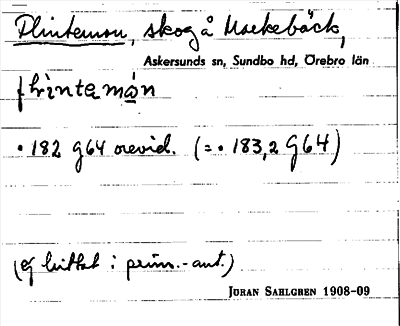 Plintemon, skog å Markebäck,
Askersunds sn, Sundbo hd, Örebro län
plìntemón
• 182 G64 orevid. (= • 183,2 G64)
(Ej hittat i prim.-ant.)
JÖRAN SAHLGREN 1908-09